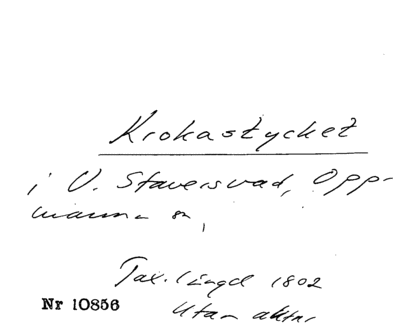 Krokastycket
i V. Staversvad, Opp-
manna sn,
Tax.längd 1802
Nr 10856 utan aktnr